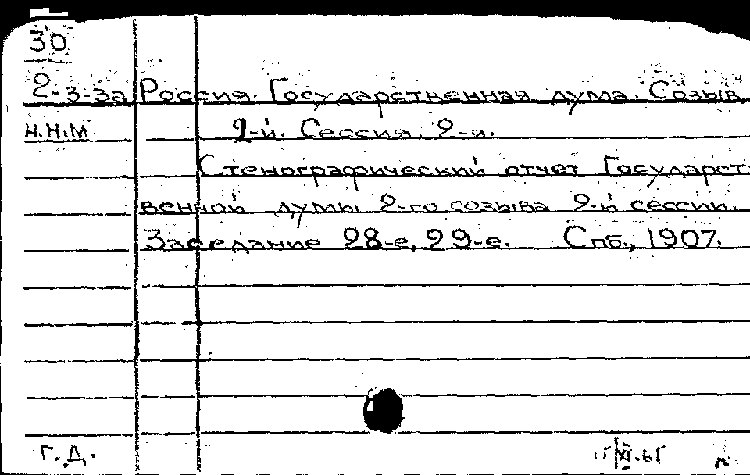 30
2-3-3а Россия. Государственная дума. Созыв
Н.Н.М 2-й. Сессия, 2-и.
Стенографический отчет Государст-
венной думы 2-го созыва 2-й сессии.
Заседание 28-е, 29-е. Спб., 1907.
Г.Д.